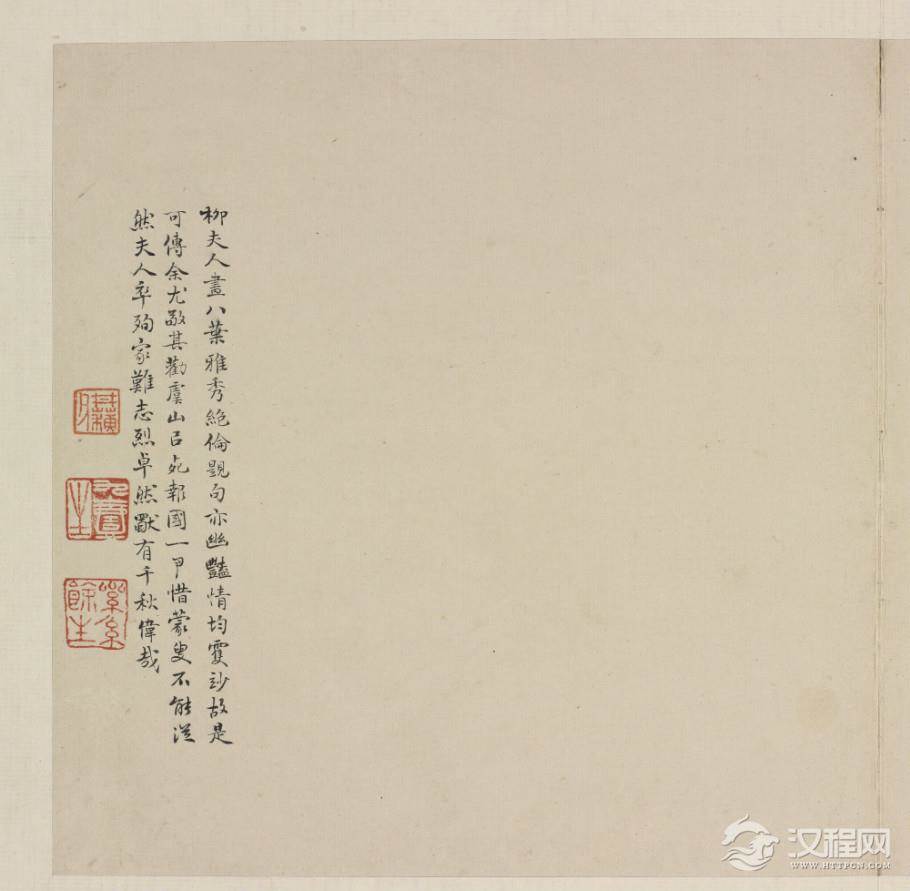 柳夫人畫八葉雅秀絕倫題句亦幽豔情均雙妙故是
可傳余尤敬其勸虞山以死報國一甲惜蒙叟不能從
然夫人卒殉家難志烈卓然獸有千秋偉哉
餘生
汉程网
WWW.HTTPCN.COM